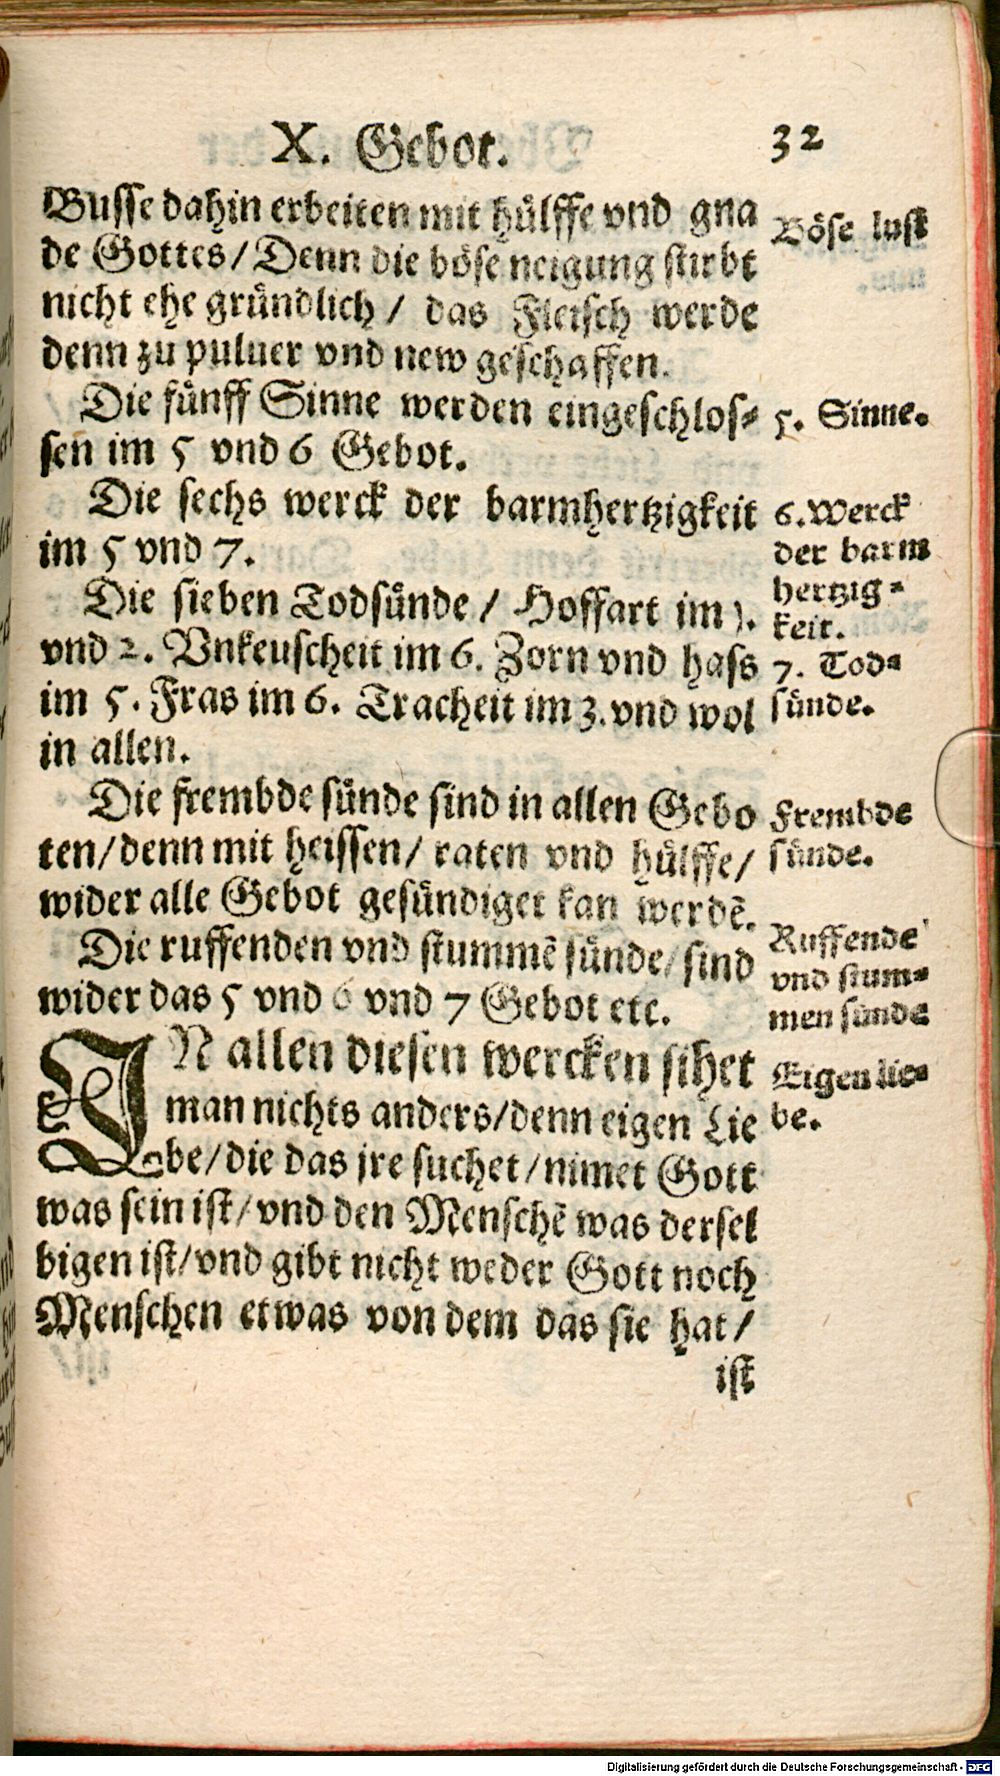 X. Gebot.
32
Busse dahin erbeiten mit hülffe vnd gna
de Gottes/Denn die böse neigung stirbt
nicht ehe gründlich/ das Fleisch werde
denn zu puluer vnd new geschaffen.
Böse lust
Die fünff Sinne werden eingeschlos-
sen im 5 vnd 6 Gebot.
5. Sinne.
Die sechs werck der barmhertzigkeit
im 5 vnd 7.
6. Werck
der barm
hertzig-
keit.
Die sieben Todsünde/ Hoffart im 1.
vnd 2. Vnkeuscheit im 6. Zorn vnd hass
im 5. Fras im 6. Tracheit im 3. vnd wol
in allen.
7. Tod-
sünde.
Die frembde sünde sind in allen Gebo
ten/denn mit heissen/ raten vnd hülffe/
wider alle Gebot gesündiget kan werdē.
Frembde
sünde.
Die ruffenden vnd stummē sünde/sind
wider das 5 vnd 6 vnd 7 Gebot etc.
Ruffende
vnd stum-
men sünde
IN allen diesen wercken sihet
man nichts anders/denn eigen Lie
be/die das jre suchet/nimet Gott
was sein ist/vnd den Menschē was dersel
bigen ist/vnd gibt nicht weder Gott noch
Menschen etwas von dem das sie hat/
ist
Eigen lie-
be.
Digitalisierung gefördert durch die Deutsche Forschungsgemeinschaft - DFG